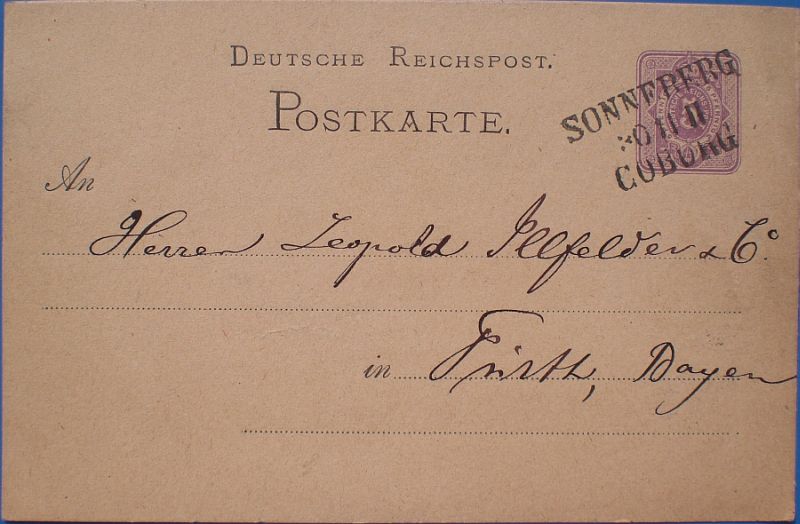 DEUTSCHE REICHSPOST.
POSTKARTE.
SONNEBERG
COBURG
An
Herren Leopold Illfelder & Co.
in Fürth, Bayern